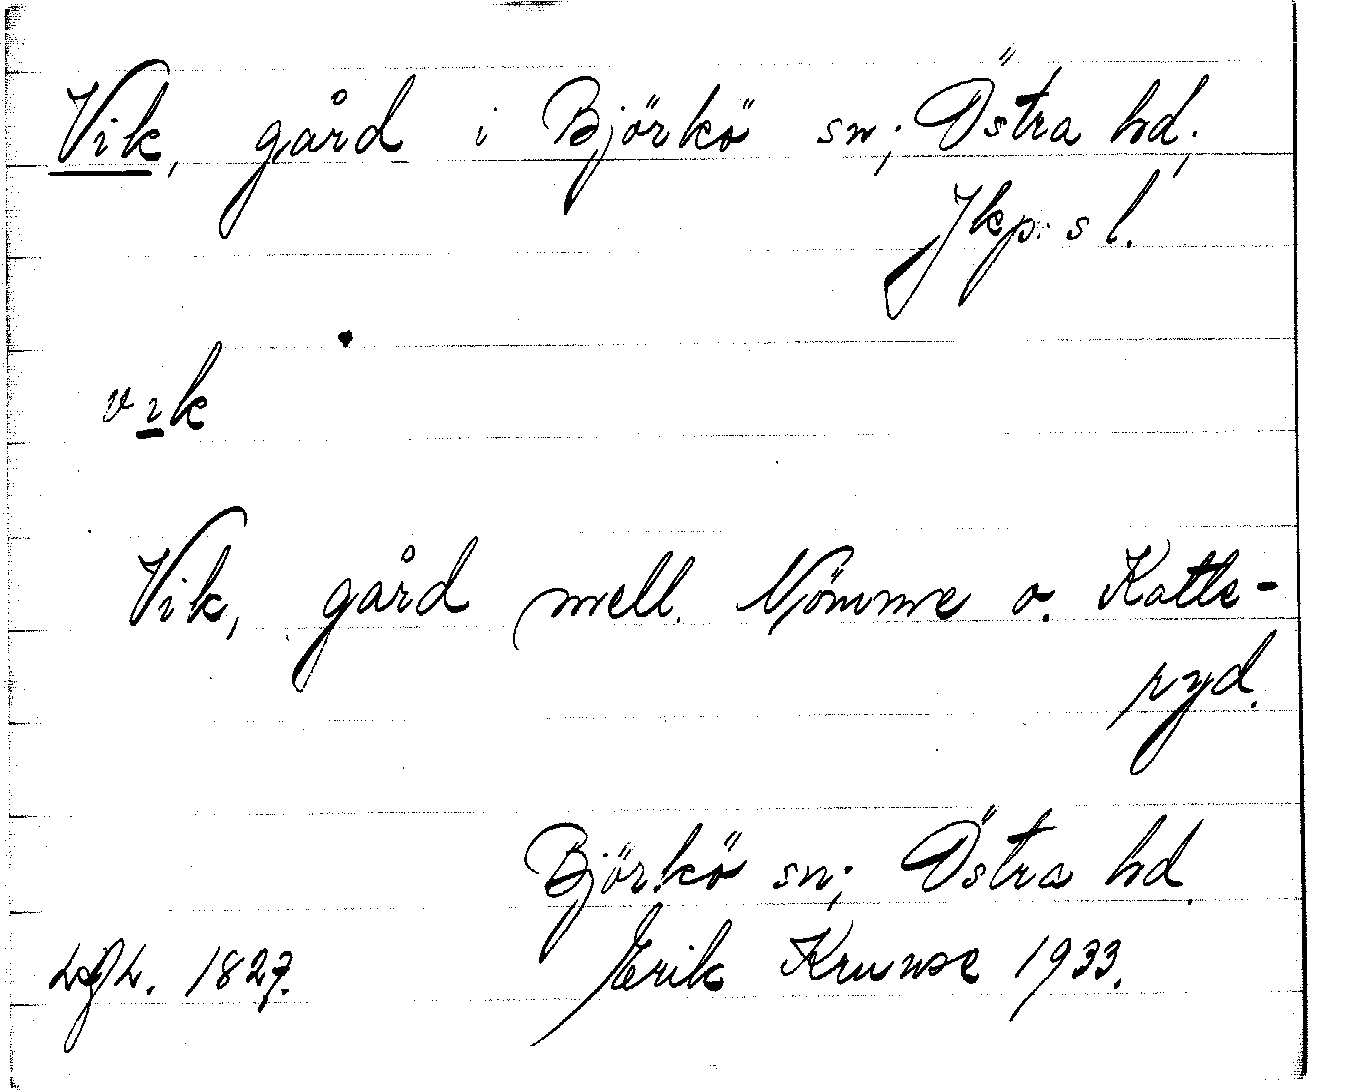 Vik, gård i Björkö sn; Östra hd;
Jkp:s l.
vik
Vik, gård mell. Nömme o. Katte-
ryd.
Björkö sn; Östra hd.
1827. Erik Krunse 1933.